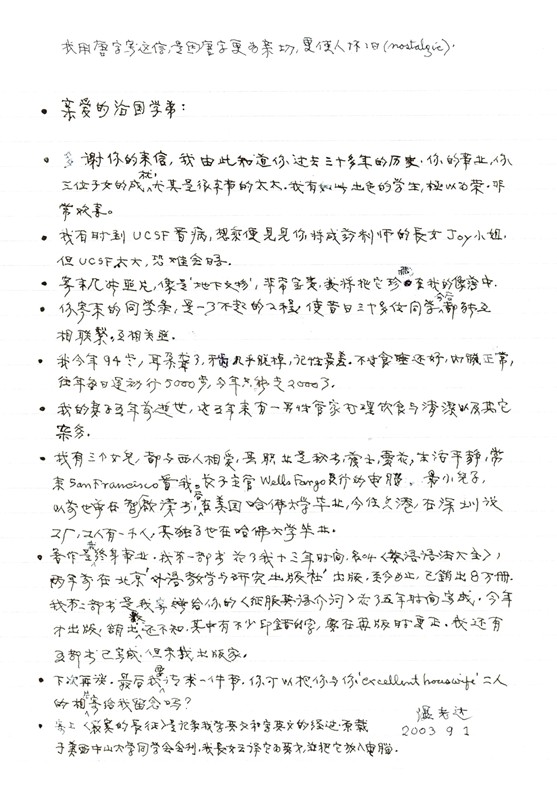 我用唐字写这信,是因唐字更为亲切,更使人怀旧(nostalgic).
亲爱的治国学弟:
多谢你的来信,我由此知道你过去三十多年的历史.你的事业,你
三位子女的成就,尤其是很本事的太太.我有如此出色的学生,极以为荣.非
常欢喜。
我有时到UCSF看病,想乘便见见你将成药剂师的长女Joy小姐.
但UCSF太大,恐难会晤.
寄来几张照片,像是'地下文物',非常宝贵,我将把它珍藏在我的像簿中.
你寄来的同学录,是一了不起的工程,使昔日三十多位同学,今后都能互
相联繫,互相关照.
我今年94岁,耳朵聋了,牙齿几乎脱掉,记性最差.不过食睡还好,内脏正常,
往年每日运动行5000步,今年只能走2000了.
我的妻子五年前逝世,这五年来有一男性管家办理饮食与清洁以及其它
杂务.
我有三个女儿,都与西人相爱,
来San Francisco看我.长子主管Wells Fargo银行的电脑.最小儿子,
在美国哈佛大学毕业,今住香港,在深圳设
工厂,工人有一千人,其独子也在哈佛大学毕业.
著作是我终身事业.我有一部书花了我十三年时间,名叫《英语语法大全》,
两年前在北京'外语教学与研究出版社'出版,至今为止,已销出8万册.
我有二部书是我寄赠给你的《征服英语介词》花了五年时间写成.今年
才出版,销出多少还不知.其中有不少印错的字,要在再版时更正.我还有
五部书已写成,但未找出版家.
下次再谈.最后我要请求一件事.你可以把你与你'excellent housewife'二人
的相片寄给我留念吗?
寄上《寂寞的长征》是记录我学英文和写英文的经过.原载
于美西中山大学同学会会刊,我长女又译它为英文,并把它放入电脑.
温老达
2003 9 1